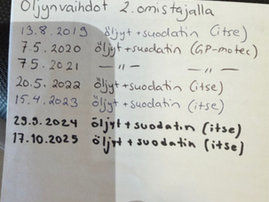 Öljynvaihdot 2. omistajalla
13.8.2019 öljyt+suodatin (itse)
7.5.2020 öljyt+suodatin (GP-motec)
7.5.2021 — 〃 — — 〃 —
20.5.2022 öljyt+suodatin (itse)
15.4.2023 öljyt+suodatin (itse)
29.9.2024 öljyt+suodatin (itse)
17.10.2025 öljyt+suodatin (itse)